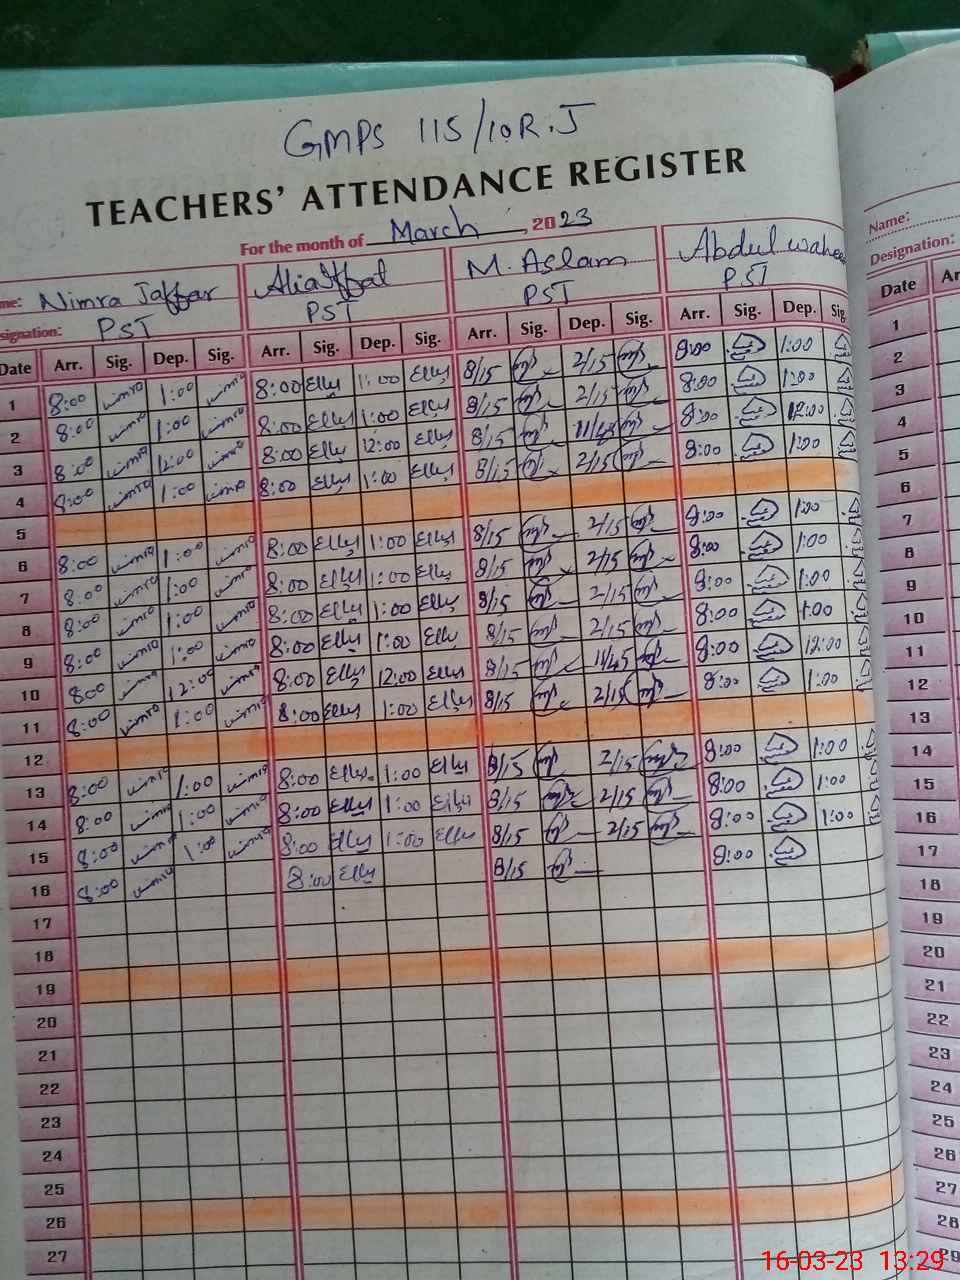 GMPS 115/10R.J
TEACHERS' ATTENDANCE REGISTER
For the month of March, 2023
me: Nimra Jaffar
signation: PST
Aliaffat
PST
M. Aslam
PST
Abdul wahee
PST
Date Arr. Sig. Dep. Sig. Arr. Sig. Dep. Sig. Arr. Sig. Dep. Sig. Arr. Sig. Dep. Sig.
1 8:00 nimra 1:00 nimra 8:00 Elly 1:00 Elly 8/15 2/15 8:00 1:00
2 8:00 nimra 1:00 nimra 8:00 Elly 1:00 Elly 8/15 2/15 8:00 1:00
3 8:00 nimra 12:00 nimra 8:00 Elly 12:00 Elly 8/15 11/45 8:00 12:00
4 8:00 nimra 1:00 nimra 8:00 Elly 1:00 Elly 8/15 2/15 8:00 1:00
5
6 8:00 nimra 1:00 nimra 8:00 Elly 1:00 Elly 8/15 2/15 8:00 1:00
7 8:00 nimra 1:00 nimra 8:00 Elly 1:00 Elly 8/15 2/15 8:00 1:00
8 8:00 nimra 1:00 nimra 8:00 Elly 1:00 Elly 8/15 2/15 8:00 1:00
9 8:00 nimra 1:00 nimra 8:00 Elly 1:00 Elly 8/15 2/15 8:00 1:00
10 8:00 nimra 12:00 nimra 8:00 Elly 12:00 Elly 8/15 11/45 8:00 12:00
11 8:00 nimra 1:00 nimra 8:00 Elly 1:00 Elly 8/15 2/15 8:00 1:00
12
13 8:00 nimra 1:00 nimra 8:00 Elly 1:00 Elly 8/15 2/15 8:00 1:00
14 8:00 nimra 1:00 nimra 8:00 Elly 1:00 Elly 8/15 2/15 8:00 1:00
15 8:00 nimra 1:00 nimra 8:00 Elly 1:00 Elly 8/15 2/15 8:00 1:00
16 8:00 nimra 8:00 Elly 8/15 8:00
17
18
19
20
21
22
23
24
25
26
27
Name:
Designation:
Date Ar
1
2
3
4
5
6
7
8
9
10
11
12
13
14
15
16
17
18
19
20
21
22
23
24
25
26
27
28
29
16-03-23 13:29